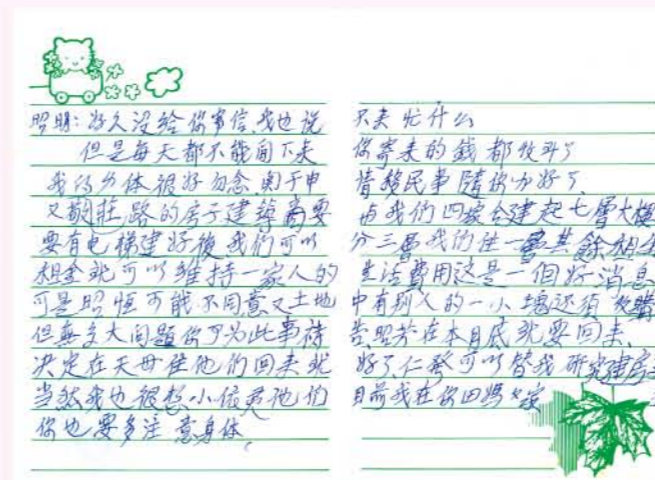 昭明：好久没給你写信，我也说
但是每天都不能闲下来
我的身体很好勿念 関于申
又敬莊路的房子建築商要
要有电梯建好後我们可以
租金就可以维持一家人的
可是昭恒可能不同意又土地
但無多大问题你可为此事
决定在天母住他们回来就
当然我也很想小 他们
你也要多注意身体
不来忙什么
你寄来的錢都收到了
情移民事隨你办好了
由我们四 合建起七層大楼
分三層我们住一層其餘租
生活費用这是一個好消息
中有别人的一小塊还須 購
告昭芳在本月底就要回来
好了仁發可以替我研究建房
目前我在你田媽 家